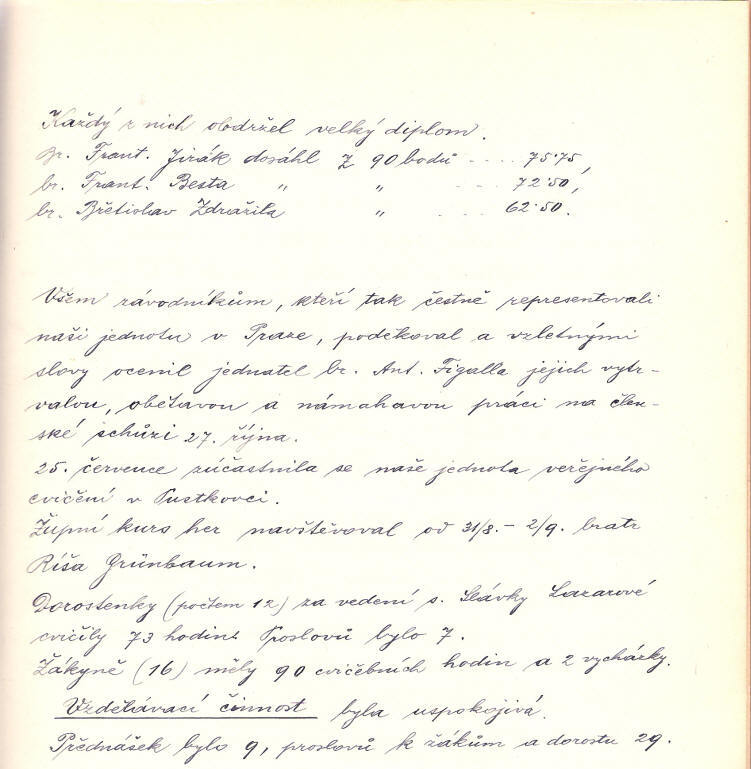 Každý z nich obdržel velký diplom.
br. Frant. Jirák dosáhl z 90 bodů .... 75·75,
br. Frant. Besta " " ... 72·50,
br. Břetislav Zdražila " .... 62·50.
Všem závodníkům, kteří tak čestně representovali
naši jednotu v Praze, poděkoval a vzletnými
slovy ocenil jednatel br. Ant. Figalla jejich vytr-
valou, obětavou a námahavou práci na člen-
ské schůzi 27. října.
25. července zúčastnila se naše jednota veřejného
cvičení v Pustkovci.
Župní kurs her navštěvoval od 31/8. - 2/9. bratr
Ríša Grünbaum.
Dorostenky (počtem 12) za vedení s. Slávky Lazarové
cvičily 73 hodin. Proslovů bylo 7.
Žákyně (16) měly 90 cvičebních hodin a 2 vycházky.
Vzdělávací činnost byla uspokojivá.
Přednášek bylo 9, proslovů k žákům a dorostu 29.